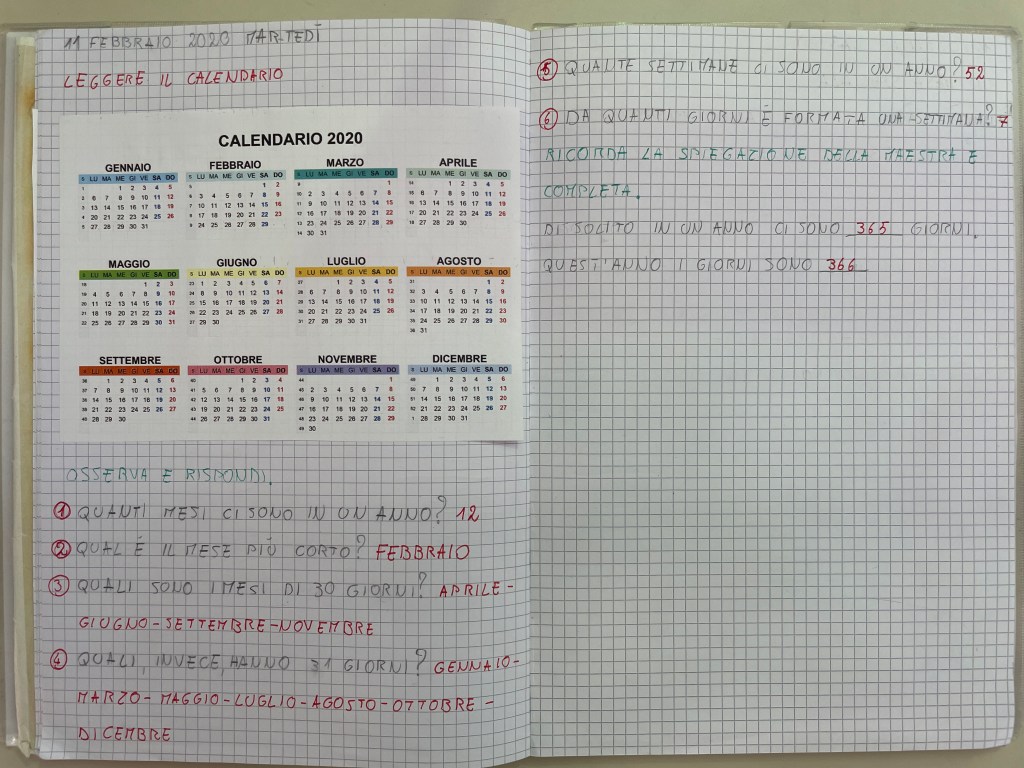 11 FEBBRAIO 2020 MARTEDÌ
LEGGERE IL CALENDARIO
CALENDARIO 2020
GENNAIO
S LU MA ME GI VE SA DO
1 1 2 3 4 5
2 6 7 8 9 10 11 12
3 13 14 15 16 17 18 19
4 20 21 22 23 24 25 26
5 27 28 29 30 31
FEBBRAIO
S LU MA ME GI VE SA DO
5 1 2
6 3 4 5 6 7 8 9
7 10 11 12 13 14 15 16
8 17 18 19 20 21 22 23
9 24 25 26 27 28 29
MARZO
S LU MA ME GI VE SA DO
9 1
10 2 3 4 5 6 7 8
11 9 10 11 12 13 14 15
12 16 17 18 19 20 21 22
13 23 24 25 26 27 28 29
14 30 31
APRILE
S LU MA ME GI VE SA DO
14 1 2 3 4 5
15 6 7 8 9 10 11 12
16 13 14 15 16 17 18 19
17 20 21 22 23 24 25 26
18 27 28 29 30
MAGGIO
S LU MA ME GI VE SA DO
18 1 2 3
19 4 5 6 7 8 9 10
20 11 12 13 14 15 16 17
21 18 19 20 21 22 23 24
22 25 26 27 28 29 30 31
GIUGNO
S LU MA ME GI VE SA DO
23 1 2 3 4 5 6 7
24 8 9 10 11 12 13 14
25 15 16 17 18 19 20 21
26 22 23 24 25 26 27 28
27 29 30
LUGLIO
S LU MA ME GI VE SA DO
27 1 2 3 4 5
28 6 7 8 9 10 11 12
29 13 14 15 16 17 18 19
30 20 21 22 23 24 25 26
31 27 28 29 30 31
AGOSTO
S LU MA ME GI VE SA DO
31 1 2
32 3 4 5 6 7 8 9
33 10 11 12 13 14 15 16
34 17 18 19 20 21 22 23
35 24 25 26 27 28 29 30
36 31
SETTEMBRE
S LU MA ME GI VE SA DO
36 1 2 3 4 5 6
37 7 8 9 10 11 12 13
38 14 15 16 17 18 19 20
39 21 22 23 24 25 26 27
40 28 29 30
OTTOBRE
S LU MA ME GI VE SA DO
40 1 2 3 4
41 5 6 7 8 9 10 11
42 12 13 14 15 16 17 18
43 19 20 21 22 23 24 25
44 26 27 28 29 30 31
NOVEMBRE
S LU MA ME GI VE SA DO
44 1
45 2 3 4 5 6 7 8
46 9 10 11 12 13 14 15
47 16 17 18 19 20 21 22
48 23 24 25 26 27 28 29
49 30
DICEMBRE
S LU MA ME GI VE SA DO
49 1 2 3 4 5 6
50 7 8 9 10 11 12 13
51 14 15 16 17 18 19 20
52 21 22 23 24 25 26 27
1 28 29 30 31
OSSERVA E RISPONDI.
1 QUANTI MESI CI SONO IN UN ANNO? 12
2 QUAL È IL MESE PIÙ CORTO? FEBBRAIO
3 QUALI SONO I MESI DI 30 GIORNI? APRILE-
GIUGNO-SETTEMBRE-NOVEMBRE
4 QUALI, INVECE, HANNO 31 GIORNI? GENNAIO-
MARZO-MAGGIO-LUGLIO-AGOSTO-OTTOBRE-
DICEMBRE
5 QUANTE SETTIMANE CI SONO IN UN ANNO? 52
6 DA QUANTI GIORNI È FORMATA UNA SETTIMANA? 7
RICORDA LA SPIEGAZIONE DELLA MAESTRA E
COMPLETA.
DI SOLITO IN UN ANNO CI SONO 365 GIORNI.
QUEST'ANNO I GIORNI SONO 366